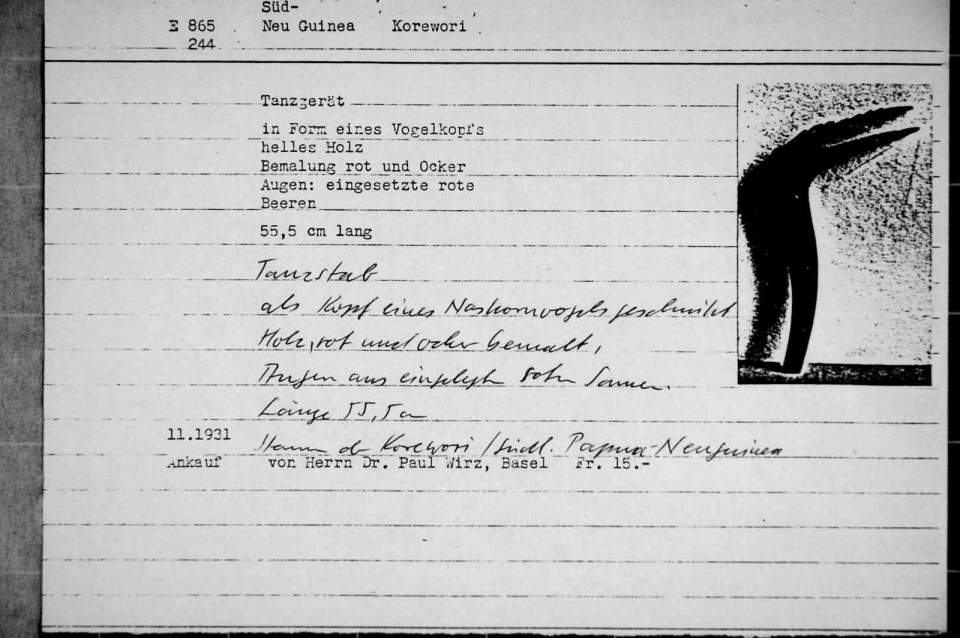 Süd-
E 865 Neu Guinea Korewori
244
Tanzgerät
in Form eines Vogelkopfs
helles Holz
Bemalung rot und Ocker
Augen: eingesetzte rote
Beeren
55,5 cm lang
Tanzstab
als Kopf eines Nashornvogels geschnitzt
Holz, rot und ocker bemalt,
Augen aus eingelegten roten Samen.
Länge 55,5 cm
11.1931
der Korewori / südl. Papua-Neuguinea
Ankauf von Herrn Dr. Paul Wirz, Basel Fr. 15.-